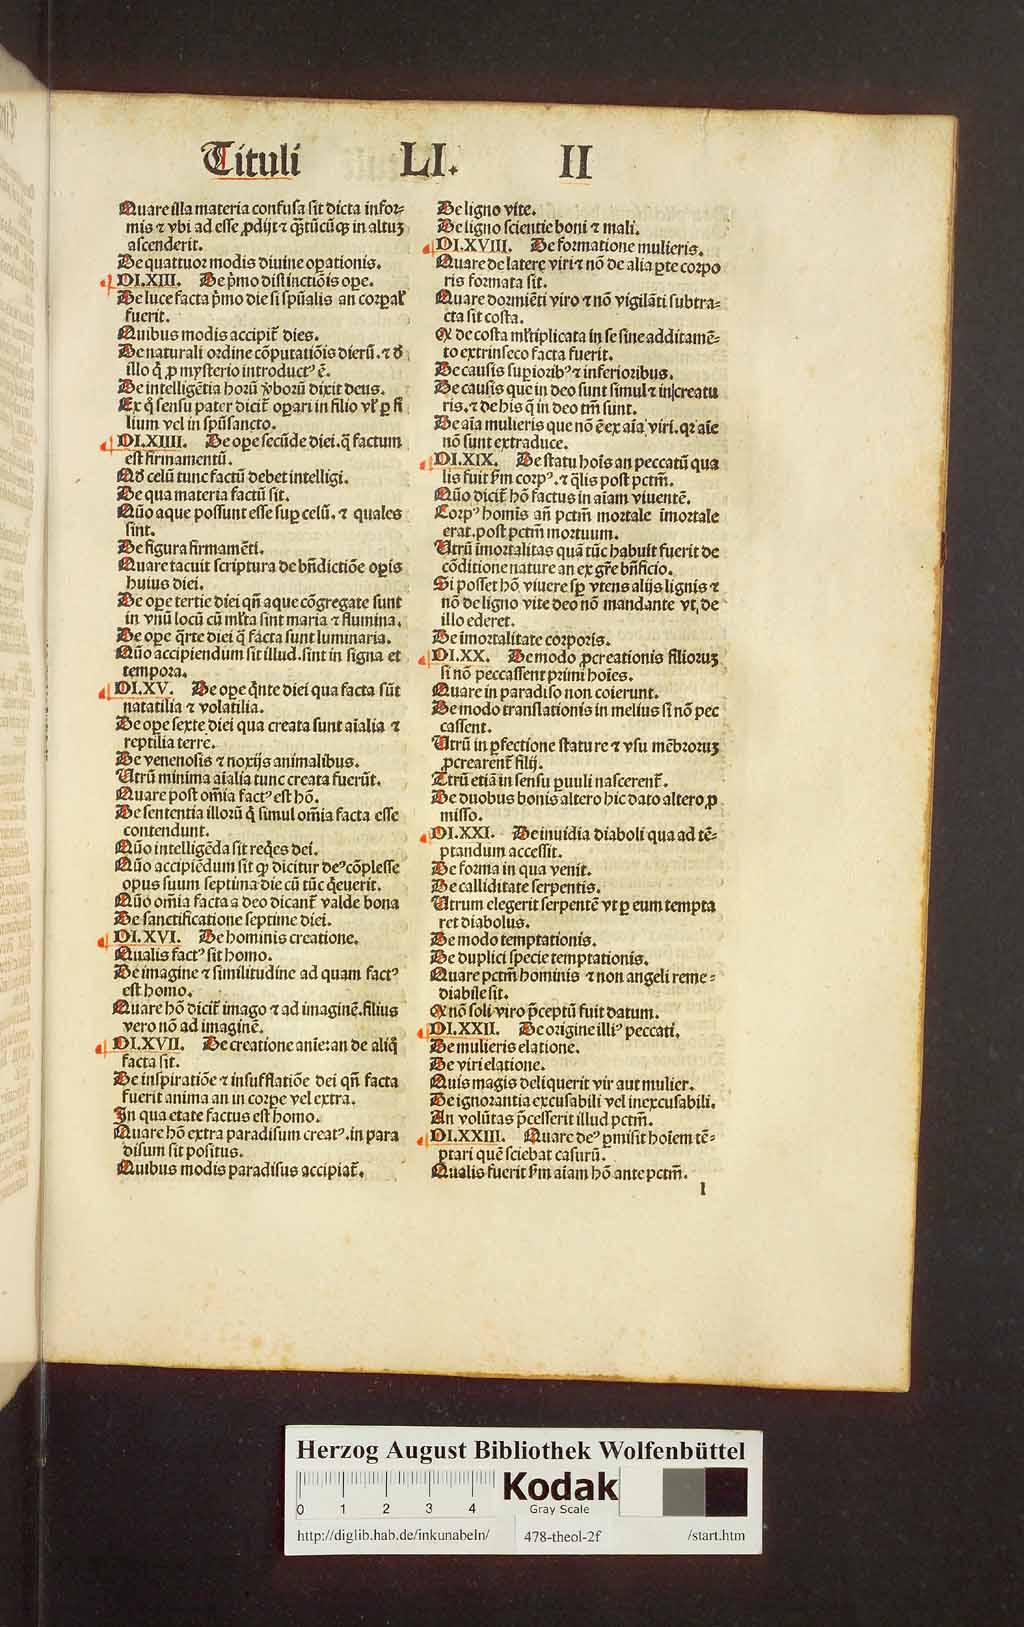 Tituli LI. II
Quare illa materia confusa sit dicta infor⸗
mis ⁊ vbi ad esse ꝓdijt ⁊ q̃ꝫtũcũqꝫ in altuꝫ
ascenderit.
De quattuor modis diuine oꝑationis.
DI.XIII. De p̃mo distinctiõis oꝑe.
De luce facta p̃mo die si spũalis an corꝑal'
fuerit.
Quibus modis accipit᷑ dies.
De naturali ordine cõputatiõis dierũ. ⁊ ð
illo q̇ ꝓ mysterio introductꝰ ẽ.
De intelligẽtia horũ v̓borũ dixit deus.
Ex q̇ sensu pater dicit᷑ oꝑari in filio vl' ꝑ fi
lium vel in spũsancto.
DI.XIIII. De oꝑe secũde diei. q̃ factum
est firmamentũ.
Qð celũ tunc factũ debet intelligi.
De qua materia factũ sit.
Qũo aque possunt esse suꝑ celũ. ⁊ quales
sint.
De figura firmamẽti.
Quare tacuit scriptura de bñdictiõe oꝑis
huius diei.
De oꝑe tertie diei qñ aque cõgregate sunt
in vnũ locũ cũ ml'ta sint maria ⁊ flumina.
De oꝑe q̃rte diei q̃ facta sunt luminaria.
Qũo accipiendum sit illud. sint in signa et
tempora.
DI.XV. De oꝑe q̇nte diei qua facta sũt
natatilia ⁊ volatilia.
De oꝑe sexte diei qua creata sunt aĩalia ⁊
reptilia terre.
De venenosis ⁊ noxijs animalibus.
Utrũ minima aĩalia tunc creata fuerũt.
Quare post om̃ia factꝰ est hõ.
De sententia illorũ q̇ simul om̃ia facta esse
contendunt.
Qũo intelligẽda sit req̇es dei.
Qũo accipiẽdum sit qꝙ dicitur deꝰ cõplesse
opus suum septima die cũ tũc q̇euerit.
Qũo om̃ia facta a deo dicant᷑ valde bona
De sanctificatione septime diei.
DI.XVI. De hominis creatione.
Qualis factꝰ sit homo.
De imagine ⁊ similitudine ad quam factꝰ
est homo.
Quare hõ dicit᷑ imago ⁊ ad imaginẽ. filius
vero nõ ad imaginẽ.
DI.XVII. De creatione anĩe: an de aliq̇
facta sit.
De inspiratiõe ⁊ insufflatiõe dei qñ facta
fuerit anima an in corꝑe vel extra.
In qua etate factus est homo.
Quare hõ extra paradisum creatꝰ. in para
disum sit positus.
Quibus modis paradisus accipiat᷑.
De ligno vite.
De ligno scientie boni ⁊ mali.
DI.XVIII. De formatione mulieris.
Quare de latere viri ⁊ nõ de alia ꝑte corpo
ris formata sit.
Quare dormiẽti viro ⁊ nõ vigilãti subtra⸗
cta sit costa.
Qꝙ de costa ml'tiplicata in se sine additamẽ⸗
to extrinseco facta fuerit.
De causis suꝑioribꝰ ⁊ inferioribus.
De causis que in deo sunt simul ⁊ in creatu
ris. ⁊ de his q̃ in deo tm̃ sunt.
De aĩa mulieris que nõ ẽ ex aĩa viri. qꝛ aĩe
nõ sunt extraduce.
DI.XIX. De statu hoĩs an peccatũ qua
lis fuit ẜm corpꝰ. ⁊ q̃lis post pctm̃.
Qũo dicit᷑ hõ factus in aĩam viuentẽ.
Corpꝰ homis añ pctm̃ mortale ĩmortale
erat. post pctm̃ mortuum.
Utrũ ĩmortalitas quã tũc habuit fuerit de
cõditione nature an ex gr̃e bñficio.
Si posset hõ viuere sꝑ vtens alijs lignis ⁊
nõ de ligno vite deo nõ mandante vt de
illo ederet.
De ĩmortalitate corporis.
DI.XX. De modo ꝓcreationis filioruꝫ
si nõ peccassent primi hoĩes.
Quare in paradiso non coierunt.
De modo translationis in melius si nõ pec
cassent.
Utrũ in ꝑfectione stature ⁊ vsu mẽbroruꝫ
ꝓcrearent᷑ filij.
Ztrũ etiã in sensu ꝑuuli nascerent᷑.
De duobus bonis altero hic dato altero ꝓ
misso.
DI.XXI. De inuidia diaboli qua ad tẽ⸗
ptandum accessit.
De forma in qua venit.
De calliditate serpentis.
Utrum elegerit serpentẽ vt ꝑ eum tempta
ret diabolus.
De modo temptationis.
De duplici specie temptationis.
Quare pctm̃ hominis ⁊ non angeli reme⸗
diabile sit.
Qꝙ nõ soli viro p̃ceptũ fuit datum.
DI.XXII. De origine illiꝰ peccati.
De mulieris elatione.
De viri elatione.
Quis magis deliquerit vir aut mulier.
De ignorantia excusabili vel inexcusabili.
An volũtas p̃cesserit illud pctm̃.
DI.XXIII. Quare deꝰ ꝑmisit hoĩem tẽ⸗
ptari quẽ sciebat casurũ.
Qualis fuerit ẜm aĩam hõ ante pctm̃.
l
Herzog August Bibliothek Wolfenbüttel
0 1 2 3 4
Kodak
Gray Scale
http://diglib.hab.de/inkunabeln/ 478-theol-2f /start.htm